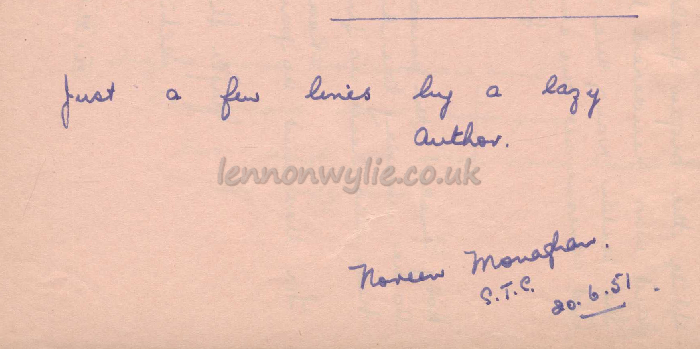 Just a few lines by a lazy
Author.
lennonwylie.co.uk
Noreen Monaghan.
S.T.C.
20.6.51.